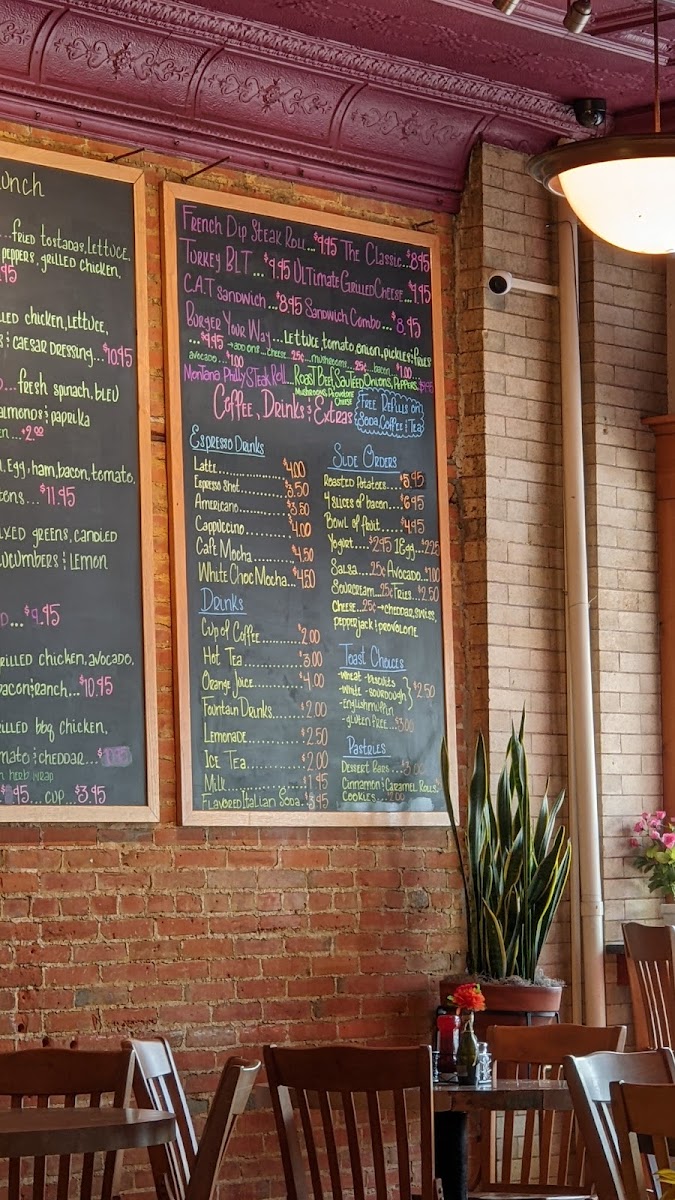 unch
...fried tostadas, lettuce,
peppers, grilled chicken,
95
lled chicken, lettuce,
s & caesar dressing...$10.95
...fresh spinach, bleu
almonds & paprika
en...$2.00
, egg, ham, bacon, tomato,
tons...$11.95
ixed greens, candied
ucumbers & lemon
D...$9.95
rilled chicken, avocado,
bacon & ranch...$10.95
rilled bbq chicken,
mato & cheddar...$
herb wrap
95...cup...$3.95
French Dip Steak Roll...$9.95 The Classic...$8.95
Turkey BLT...$9.95 Ultimate Grilled Cheese...$9.95
C.A.T Sandwich...$8.95 Sandwich Combo...$8.95
Burger Your Way...Lettuce, tomato, onion, pickles & fries
...$9.95 → add ons...cheese...25¢...mushrooms...25¢...bacon...$1.00...
avocado...$1.00
Montana Philly Steak Roll...Roast Beef, Sautéed Onions, Peppers,
Mushrooms, Provolone
Cheese
Coffee, Drinks & Extras
Free Refills on
Soda, Coffee & Tea
Espresso Drinks
Latte...$4.00
Espresso Shot...$3.50
Americano...$3.50
Cappuccino...$4.00
Café Mocha...$4.50
White Choc Mocha...$4.50
Drinks
Cup of Coffee...$2.00
Hot Tea...$3.00
Orange Juice...$4.00
Fountain Drinks...$2.00
Lemonade...$2.50
Ice Tea...$2.00
Milk...$1.95
Flavored Italian Soda...$3.95
Side Orders
Roasted Potatoes...$3.95
4 slices of bacon...$6.95
Bowl of fruit...$4.95
Yogurt...$2.95 1 Egg...$2.25
Salsa...25¢ Avocado...$1.00
Sour cream...25¢ Fries...$2.50
Cheese...25¢ → cheddar, swiss,
pepperjack & provolone
Toast Choices
-wheat -biscuits
-white -sourdough } $2.50
-english muffin
-gluten free...$3.00
Pastries
Dessert Bars...$3.00
Cinnamon & Caramel Rolls
Cookies...2.00